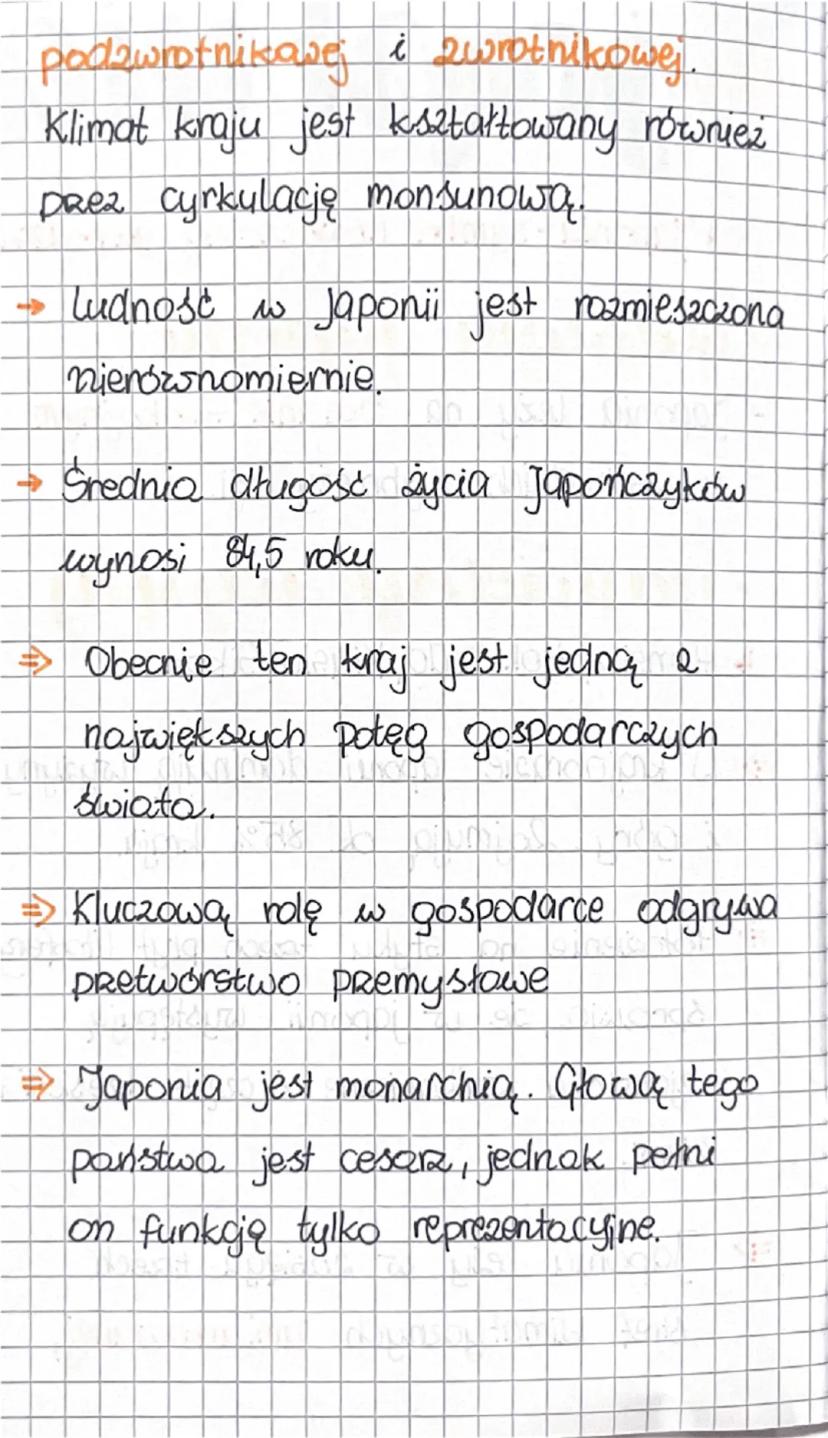 podzwrotnikowej i zwrotnikowej.
Klimat kraju jest kształtowany również
przez cyrkulację monsunową.
→ Ludność w Japonii jest rozmieszczona
nierównomiernie.
→ Średnia długość życia Japończyków
wynosi 84,5 roku.
⇒ Obecnie ten kraj jest jedną z
największych potęg gospodarczych
świata.
⇒ Kluczową rolę w gospodarce odgrywa
przetwórstwo przemysłowe
⇒ Japonia jest monarchią. Głową tego
państwa jest cesarz, jednak pełni
on funkcję tylko reprezentacyjne.